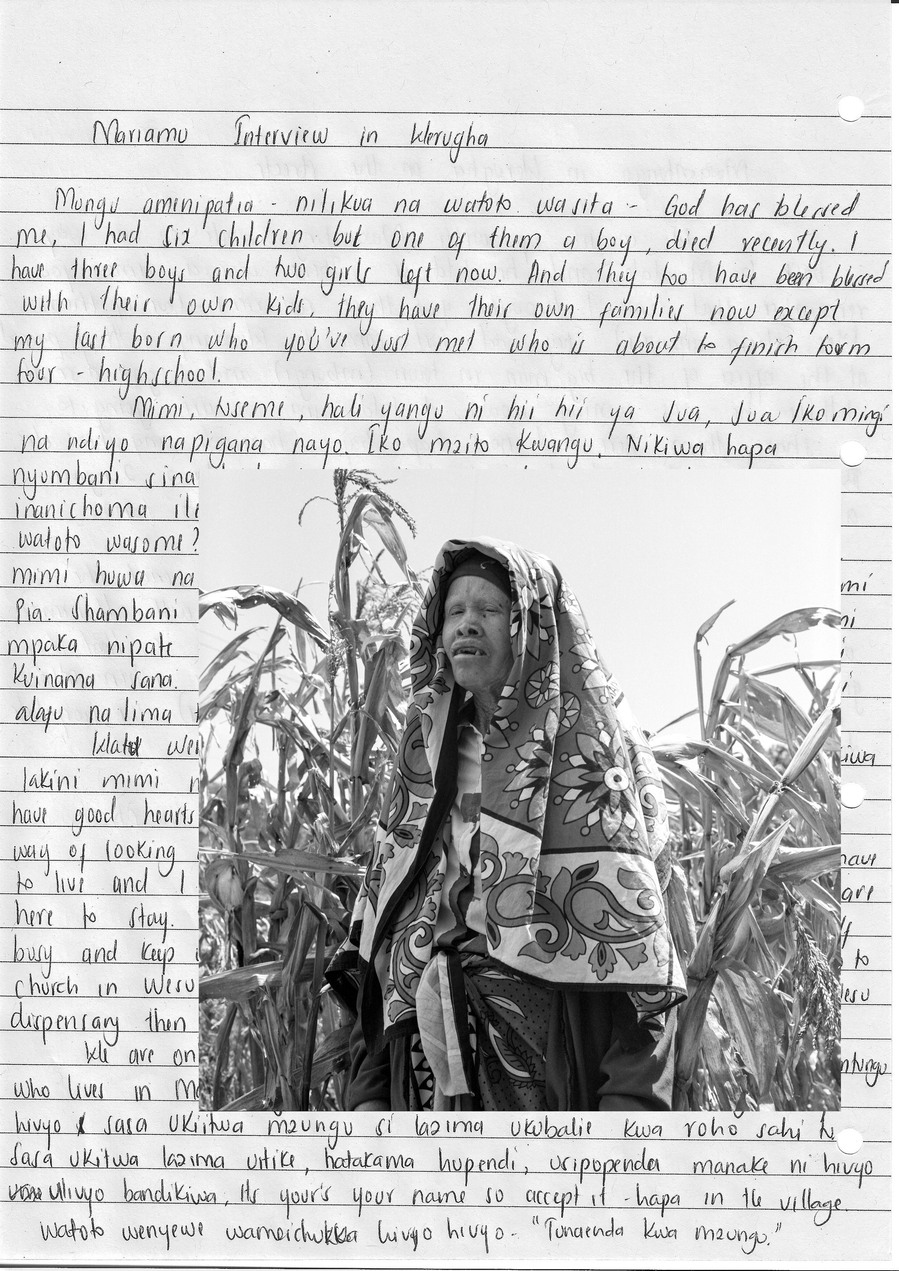 Mariamu Interview in Werugha
Mungu aminipatia - nilikua na watoto wasita - God has blessed
me, I had six children but one of them a boy, died recently. I
have three boys and two girls left now. And they too have been blessed
with their own kids, they have their own families now except
my last born who you've just met who is about to finish form
four - highschool.
Mimi, tuseme hali yangu ni hii hii ya Jua, Jua Iko mingi
na ndiyo napigana nayo. Iko mzito kwangu. Nikiwa hapa
nyumbani sina
inanichoma ili
watoto wasome?
mimi huwa na mi
Pia. Shambani ni
mpaka nipate
Kuinama sana. i
alafu nalima
We
lakini mimi kiwa
have good hearts
way of looking have
to live and I are
here to stay.
busy and keep to
church in Wesu Wesu
dispensary then
We are on mtungu
who lives in
hivyo sasa Ukiitwa mzungu si lazima ukubalie kwa roho sahi
Sasa ukitwa lazima uitike, hatakama hupendi, usipopenda manake ni hivyo
ulivyo bandikiwa, Its your's your name so accept it - hapa in the village.
watoto wenyewe wameichukua hivyo hivyo - "Tunaenda kwa mzungu."